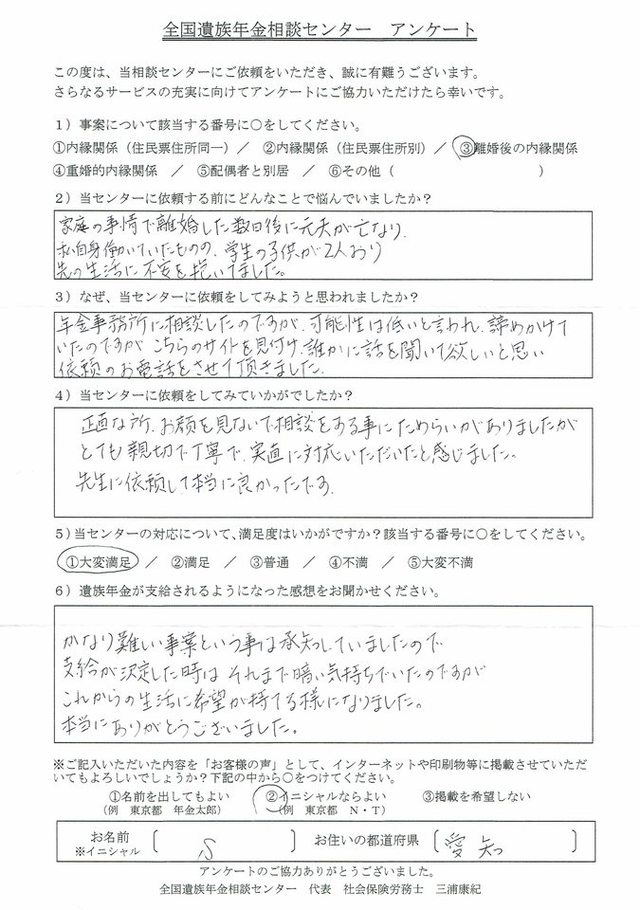 全国遺族年金相談センター　アンケート
この度は、当相談センターにご依頼をいただき、誠に有難うございます。
さらなるサービスの充実に向けてアンケートにご協力いただけたら幸いです。
１）事案について該当する番号に○をしてください。
①内縁関係（住民票住所同一）／　②内縁関係（住民票住所別）／　③離婚後の内縁関係
④重婚的内縁関係　／　⑤配偶者と別居　／　⑥その他（　　　　　　　　）
２）当センターに依頼する前にどんなことで悩んでいましたか？
家庭の事情で離婚した数日後に元夫が亡なり、
私自身働いていたものの、学生の子供が2人おり
先の生活に不安を抱いてました。
３）なぜ、当センターに依頼をしてみようと思われましたか？
年金事務所に相談したのですが、可能性は低いと言われ、諦めかけて
いたのですが こちらのサイトを見付け、誰かに話を聞いて欲しいと思い
依頼のお電話をさせて頂きました。
４）当センターに依頼をしてみていかがでしたか？
正直な所、お顔を見ないで相談をする事にためらいがありましたが
とても親切で丁寧で、実直に対応いただいたと感じました。
先生に依頼して本当に良かったです。
５）当センターの対応について、満足度はいかがですか？該当する番号に○をしてください。
①大変満足　／　②満足　／　③普通　／　④不満　／　⑤大変不満
６）遺族年金が支給されるようになった感想をお聞かせください。
かなり難しい事案という事は承知していましたので
支給が決定した時は それまで暗い気持ちでいたのですが
これからの生活に希望が持てる様になりました。
本当にありがとうございました。
※ご記入いただいた内容を「お客様の声」として、インターネットや印刷物等に掲載させていただ
いてもよろしいでしょうか？下記の中から○をつけてください。
①名前を出してもよい　②イニシャルならよい　③掲載を希望しない
（例　東京都　年金太郎）　（例　東京都　Ｎ・Ｔ）
お名前　〔　S　〕　お住いの都道府県〔　愛知　〕
※イニシャル
アンケートのご協力ありがとうございました。
全国遺族年金相談センター　代表　社会保険労務士　三浦康紀